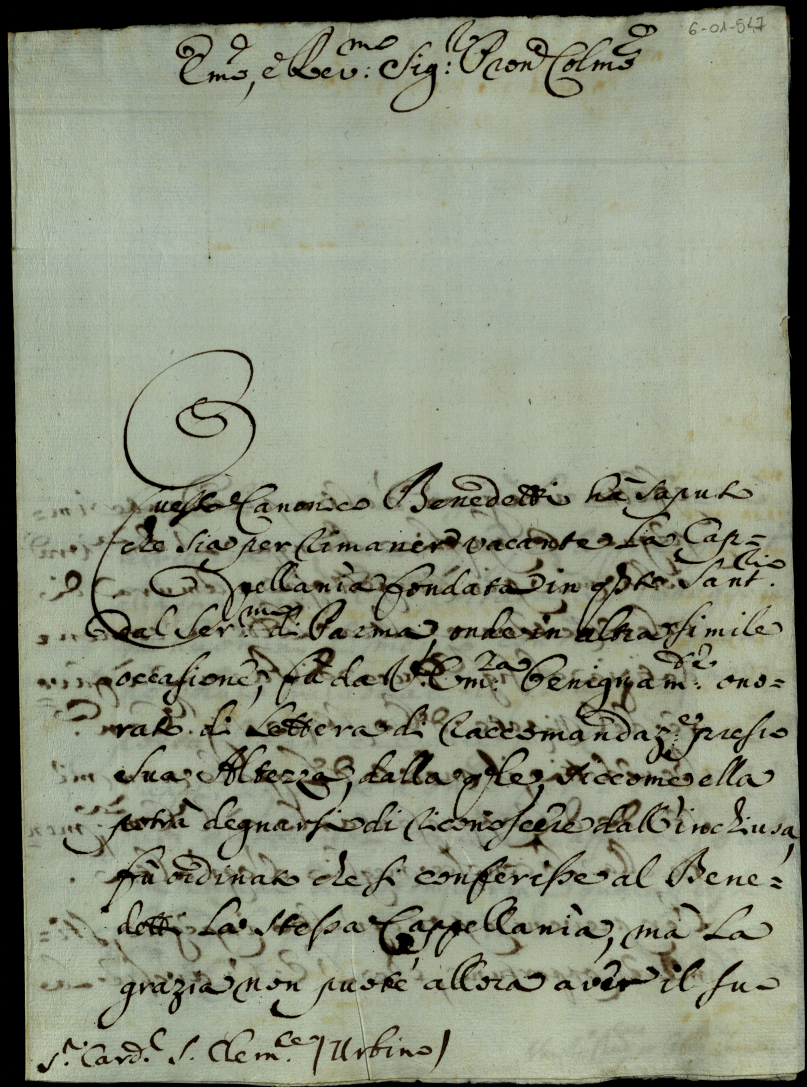 6-01-547
Em.o, e Rev.mo Sig.r Pron Colmo
Questo Canonico Benedetti hà saputo
che sia per rimaner vacante la Cap=
pellania fondata in q̃sto Sant.rio
dal Ser.mo di Parma, onde in altra simile
occasione, fù da V. Em.za benignam.te ono=
rato di Lettera di raccomandaz.e presso
Sua Altezza, dalla q̃le, siccome ella
potrà degnarsi di riconoscere dall'inchiusa,
fù ordinato che si conferisse al Bene=
detti la stessa Cappellania, mà la
grazia non puotè allora aver il suo
S.r Card.l S. Clem.te (Urbino)